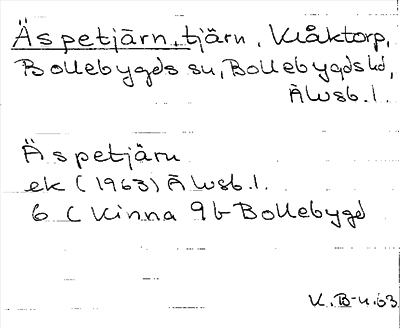 Äspetjärn, tjärn, Klåktorp,
Bollebygds sn, Bollebygds hd,
Älvsb. l.
Äspetjärn
ek (1963) Älvsb. l.
6 C Kinna 9b Bollebygd
K. B-n. 63